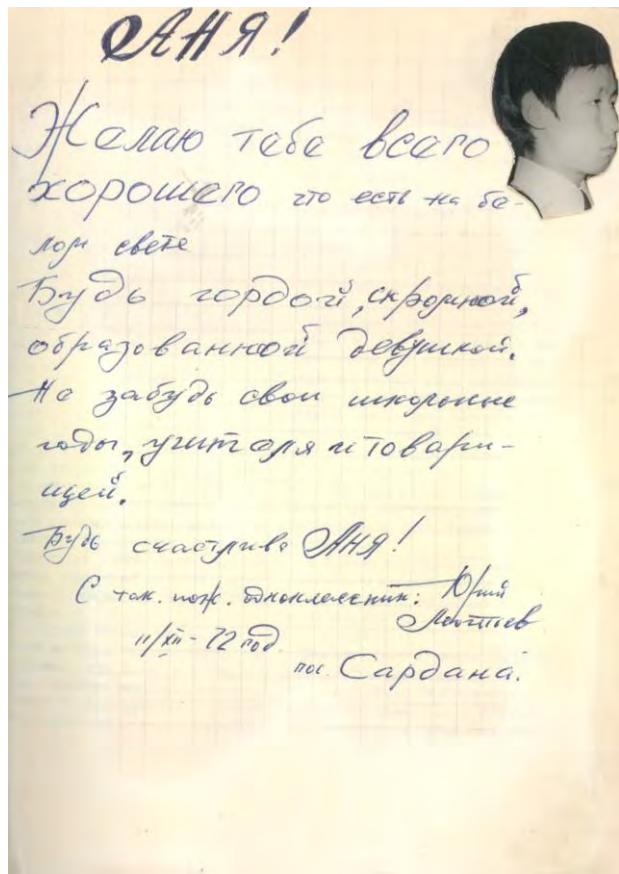 АНЯ!
Желаю тебе всего
хорошего что есть на бе-
лом свете
Будь гордой, скромной,
образованной девушкой.
Не забудь свои школьные
годы, учителя и товари-
щей.
Будь счастлива АНЯ!
С тов. пож. одноклассник: Юрий
Леонтьев
11/XII-72 год
пос. Сардана.